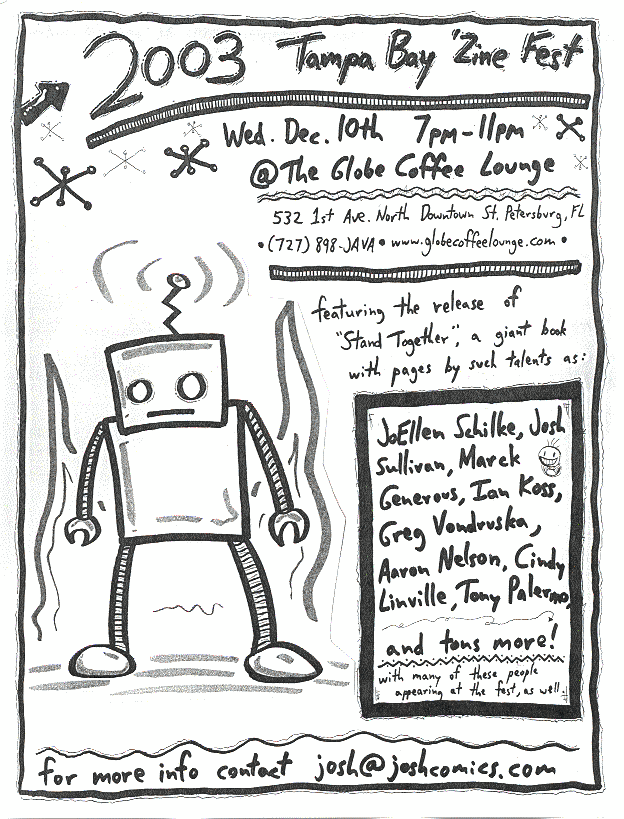 2003 Tampa Bay 'Zine Fest
Wed. Dec. 10th 7pm-11pm
@ The Globe Coffee Lounge
532 1st Ave. North Downtown St. Petersburg, FL
• (727) 898-JAVA • www.globecoffeelounge.com •
featuring the release of
"Stand Together", a giant book
with pages by such talents as:
JoEllen Schilke, Josh
Sullivan, Marek
Generous, Ian Koss,
Greg Vondruska,
Aaron Nelson, Cindy
Linville, Tony Palermo,
and tons more!
with many of these people
appearing at the fest, as well.
for more info contact josh@joshcomics.com